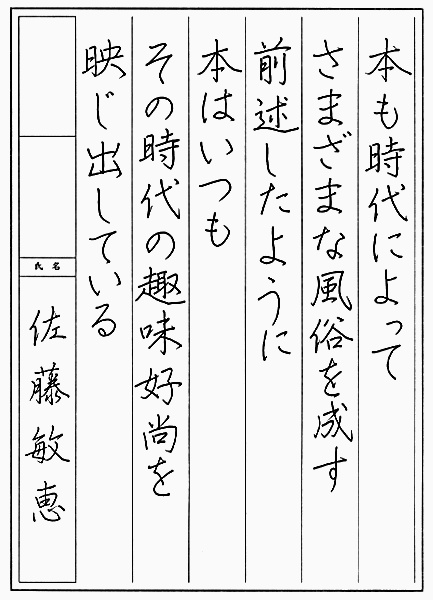 本も時代によって
さまざまな風俗を成す
前述したように
本はいつも
その時代の趣味好尚を
映じ出している
氏名
佐藤敏恵